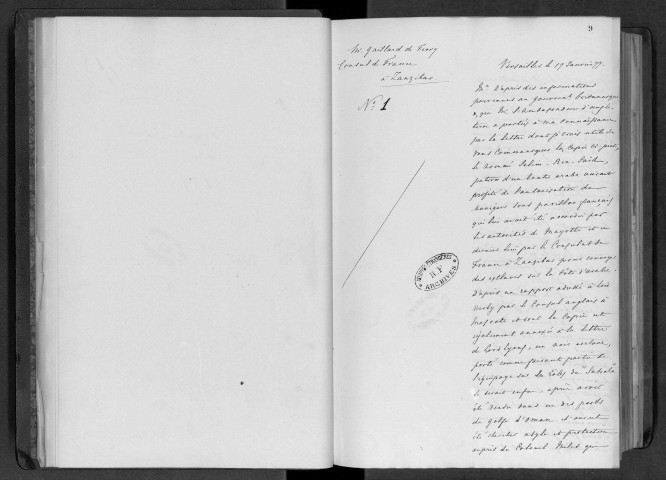 9
M. Gaillard de Ferry
Consul de France
à Zanzibar
N° 1
Versailles le 19 Janvier 77.
M. d'après des informations
parvenues au Gouvernt britannique
et que M. l'Ambassadeur d'Angle-
terre a portées à ma connaissance
par la lettre dont je crois utile de
vous communiquer la copie ci-jointe,
le nommé Selim-Ben-Saïd,
patron d'un boutre arabe aurait
profité de l'autorisation de
naviguer sous pavillon français
qui lui avait été accordée par
les autorités de Mayotte et en
dernier lieu par le Consulat de
France à Zanzibar, pour
des esclaves sur la côte d'Arabie
D'après un rapport adressé à Lord
Derby par le Consul anglais à
Mascate et dont la copie est
également annexée à la lettre
de Lord Lyons, un noir esclave,
porté comme faisant partie de
l'équipage sur les rôles du
se serait enfui après avoir
été vendu dans un des ports
du golfe d'Oman et aurait
été chercher asyle et protection
auprès du Colonel Miles que
AFFAIRES ÉTRANGÈRES
R.F
ARCHIVES